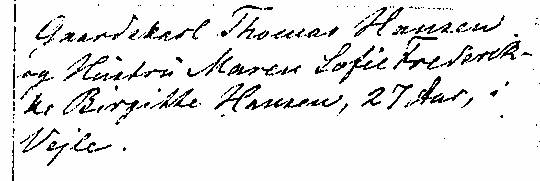 Gaardskarl Thomas Hansen
og Hustru Maren Sofie Frederik-
ke Birgitte Hansen, 27 Aar, i
Vejle.